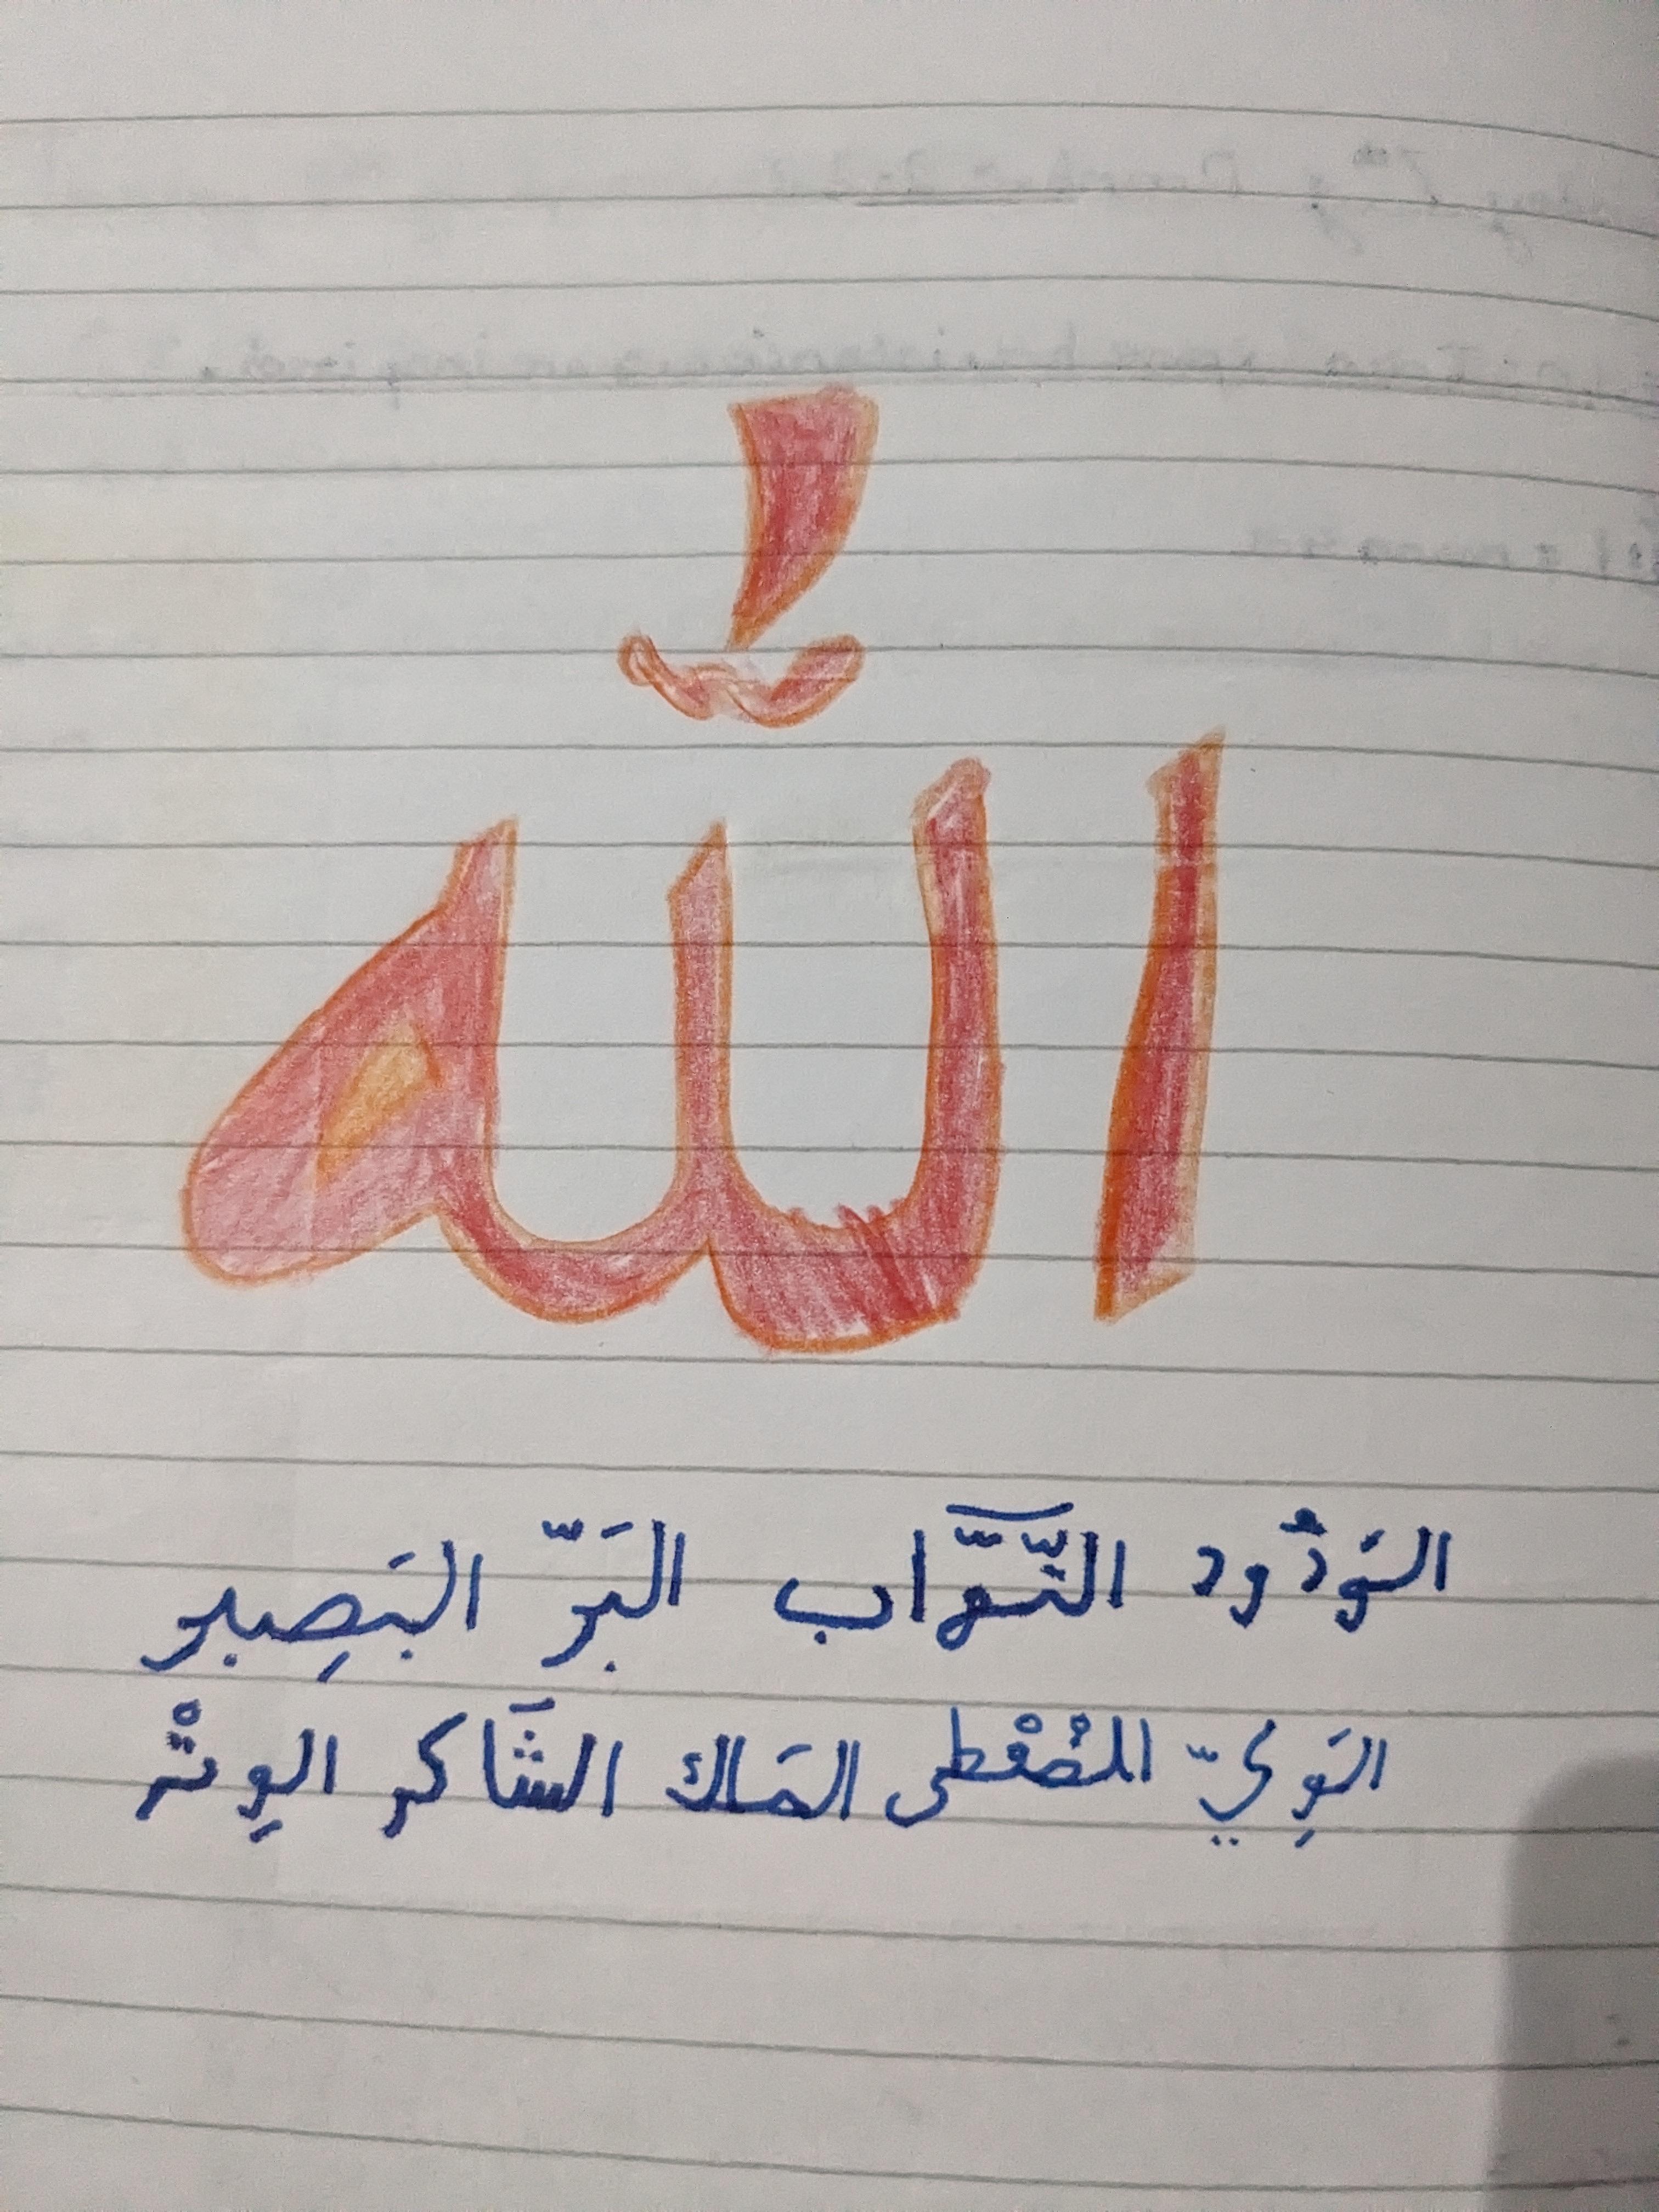 الله
الوَدُود التَّوَّاب البَرّ البَصِير
الوِيّ المُعْطى المَلك الشَّاكر الوِتْر